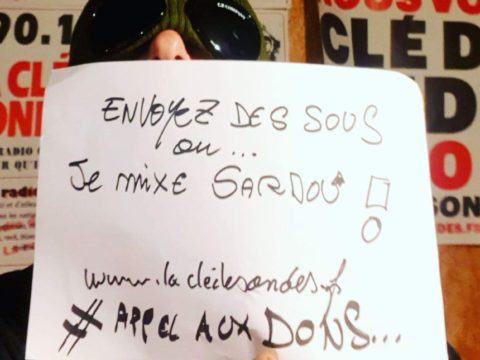 90.1
A CLÉ
ONDE
RADIO
ER QU'I
radio
NOUS VO
CLÉ D
ND
SON
ENVOYEZ DES SOUS
ou...
Je mixe SARDOU !
www.laclédesondes.fr
# APPEL AUX DONS...